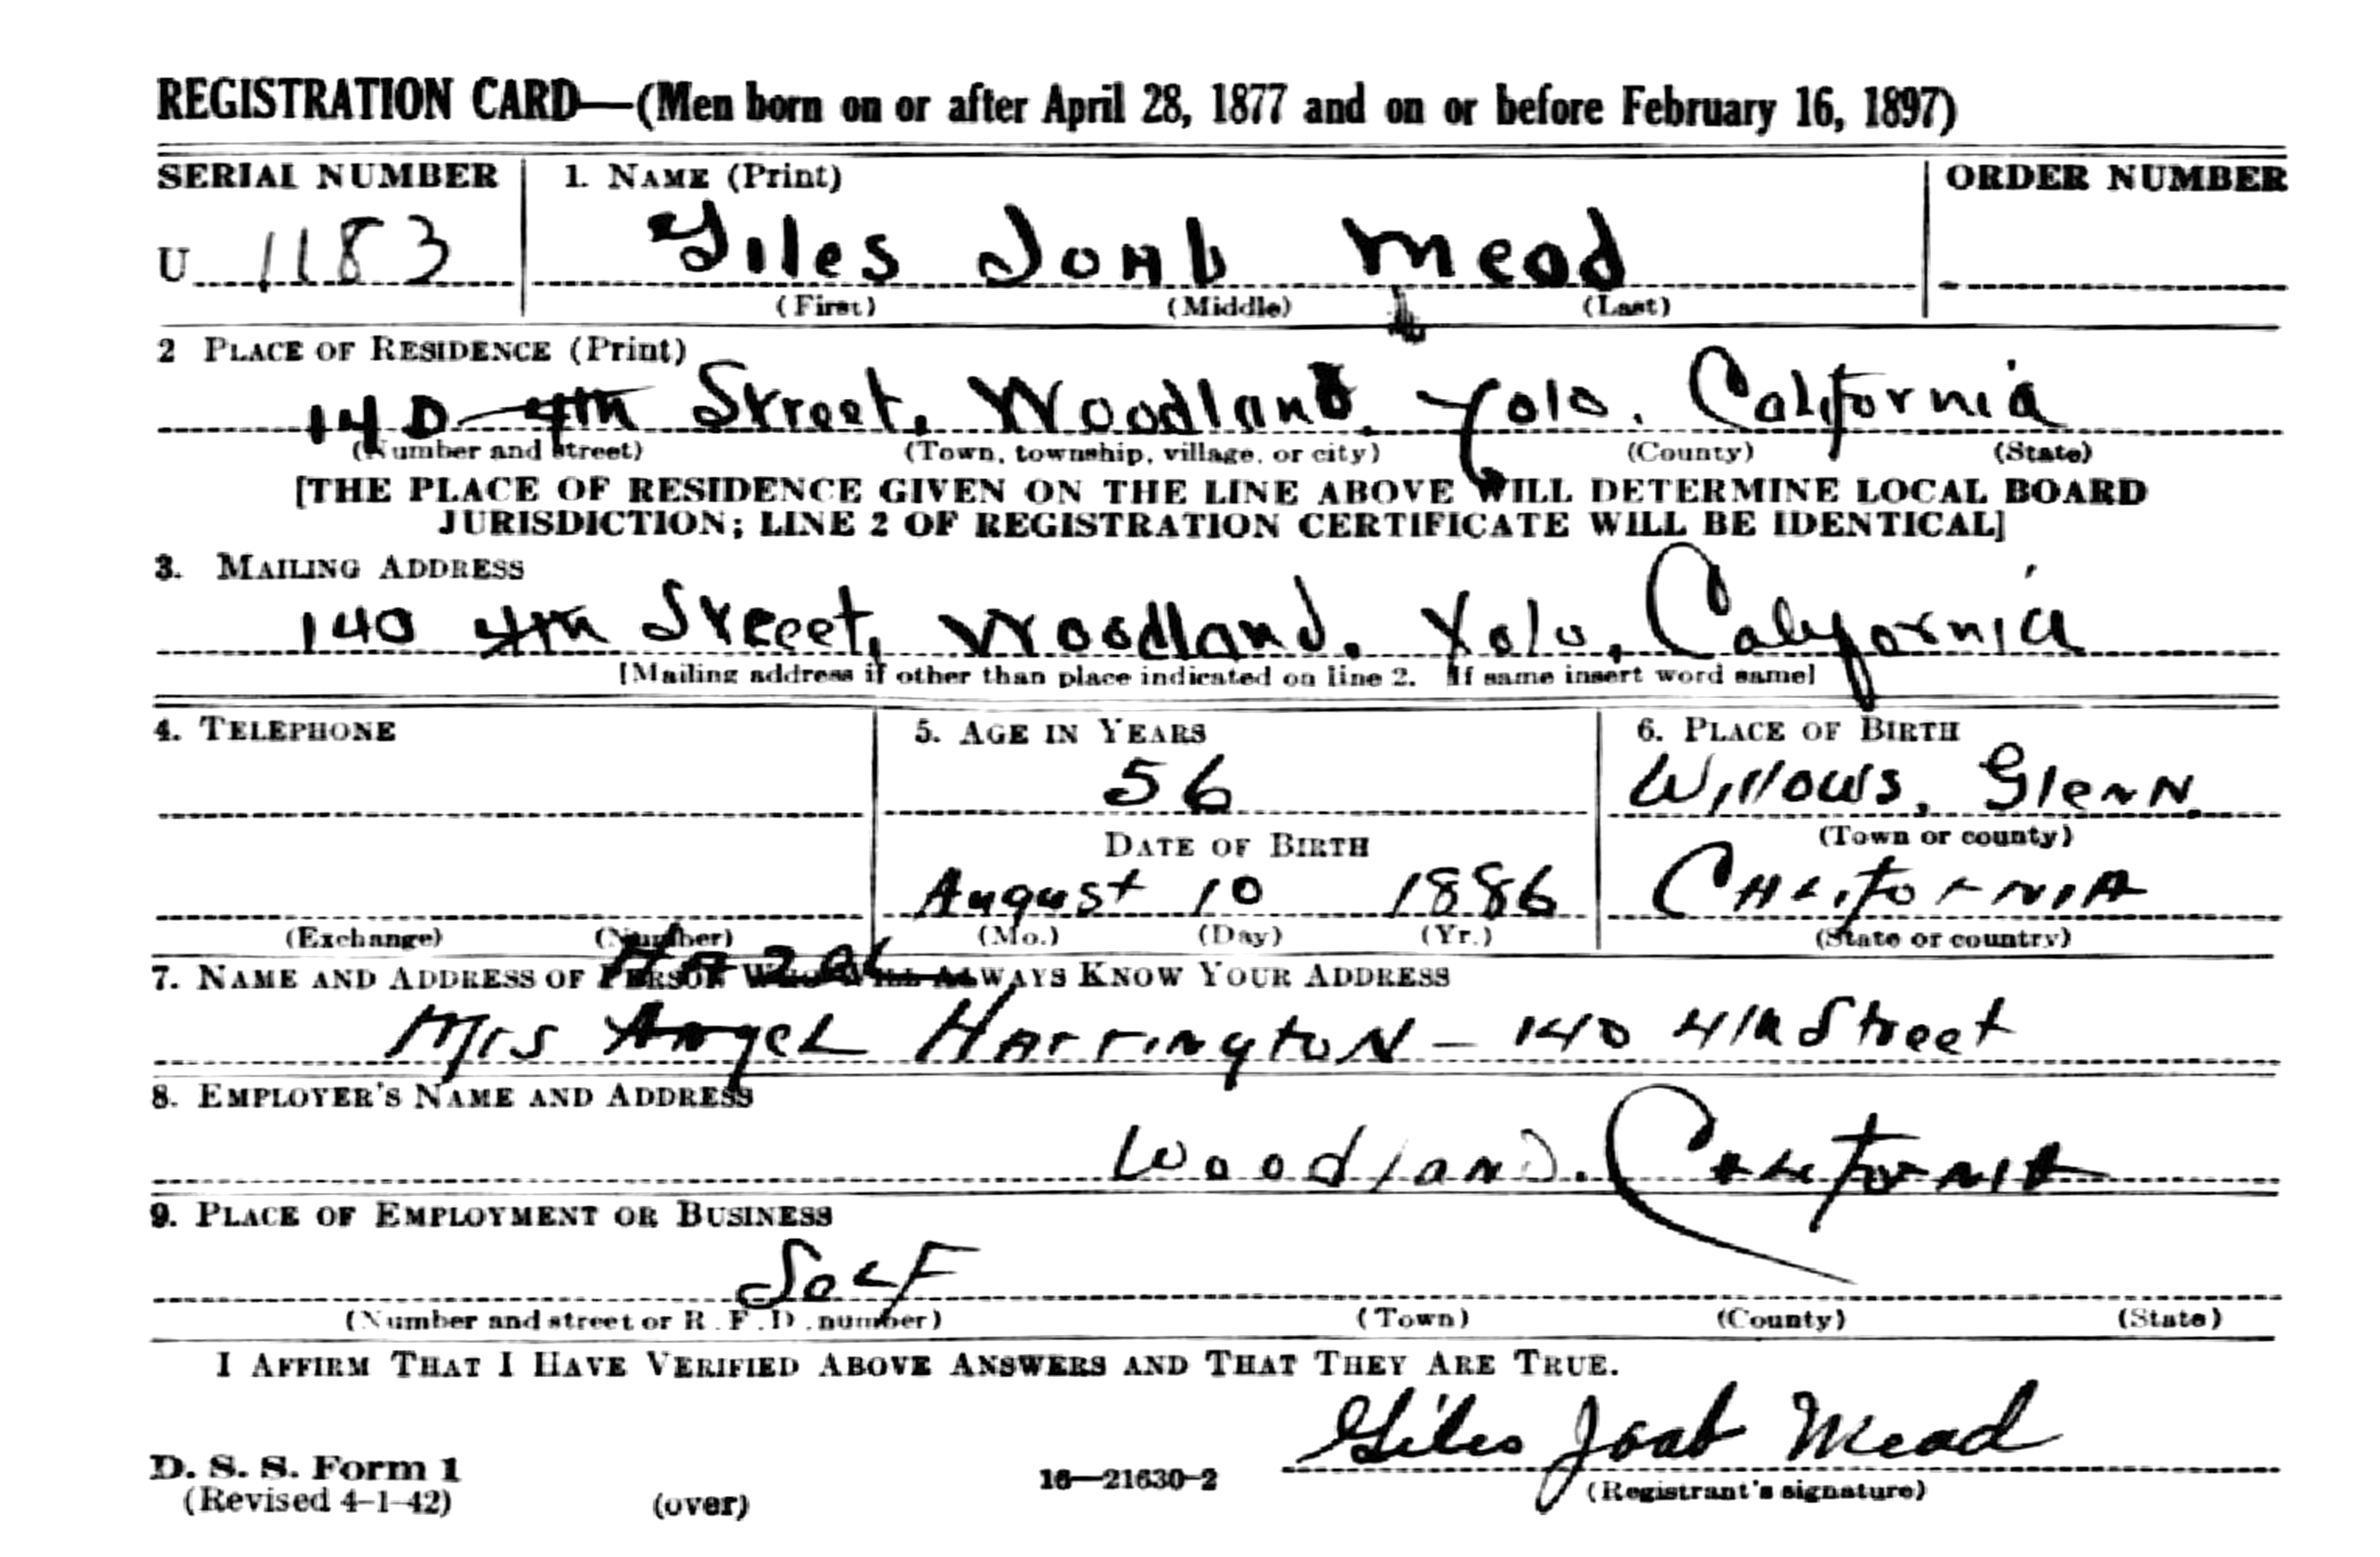 REGISTRATION CARD—(Men born on or after April 28, 1877 and on or before February 16, 1897)
SERIAL NUMBER 1. NAME (Print) ORDER NUMBER
U 1183 Giles Joab Mead
(First) (Middle) (Last)
2 PLACE OF RESIDENCE (Print)
140 4th Street, Woodland, Yolo, California
(Number and street) (Town, township, village, or city) (County) (State)
[THE PLACE OF RESIDENCE GIVEN ON THE LINE ABOVE WILL DETERMINE LOCAL BOARD
JURISDICTION; LINE 2 OF REGISTRATION CERTIFICATE WILL BE IDENTICAL]
3. MAILING ADDRESS
140 4th Street, Woodland, Yolo, California
[Mailing address if other than place indicated on line 2. If same insert word same]
4. TELEPHONE 5. AGE IN YEARS 6. PLACE OF BIRTH
56 Willows, Glenn
DATE OF BIRTH (Town or county)
August 10 1886 CALIFORNIA
(Exchange) (Number) (Mo.) (Day) (Yr.) (State or country)
Hazel
7. NAME AND ADDRESS OF PERSON WHO WILL ALWAYS KNOW YOUR ADDRESS
Mrs Angel Harrington – 140 4th Street
8. EMPLOYER'S NAME AND ADDRESS
Woodland. California
9. PLACE OF EMPLOYMENT OR BUSINESS
Self
(Number and street or R. F. D. number) (Town) (County) (State)
I AFFIRM THAT I HAVE VERIFIED ABOVE ANSWERS AND THAT THEY ARE TRUE.
Giles Joab Mead
D. S. S. Form 1 16—21630-2 (Registrant's signature)
(Revised 4-1-42) (over)